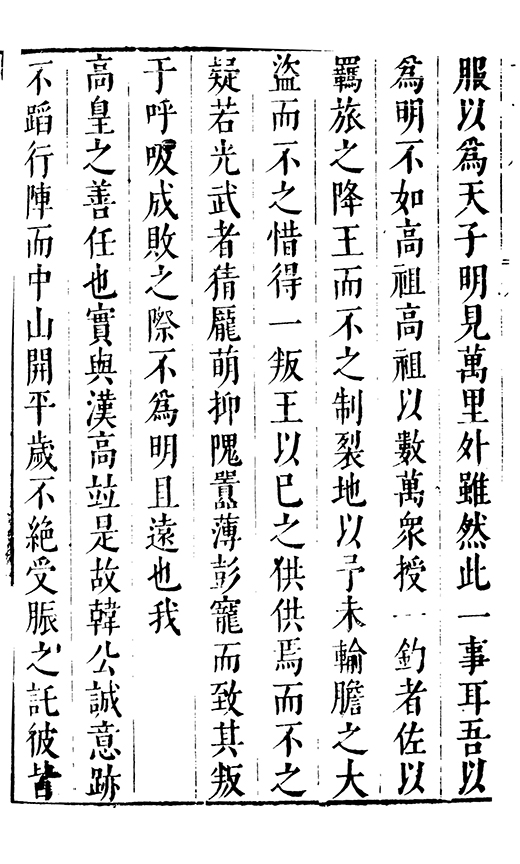 服以爲天子明見萬里外雖然此一事耳吾以
爲明不如高祖高祖以數萬衆授一釣者佐以
羈旅之降王而不之制裂地以予未輸膽之大
盜而不之惜得一叛王以已之供供焉而不之
疑若光武者猜龐萌抑隗囂薄彭寵而致其叛
于呼吸成敗之際不爲明且遠也我
高皇之善任也實與漢高竝是故韓公誠意跡
不蹈行陣而中山開平歲不絶受脤之託彼皆